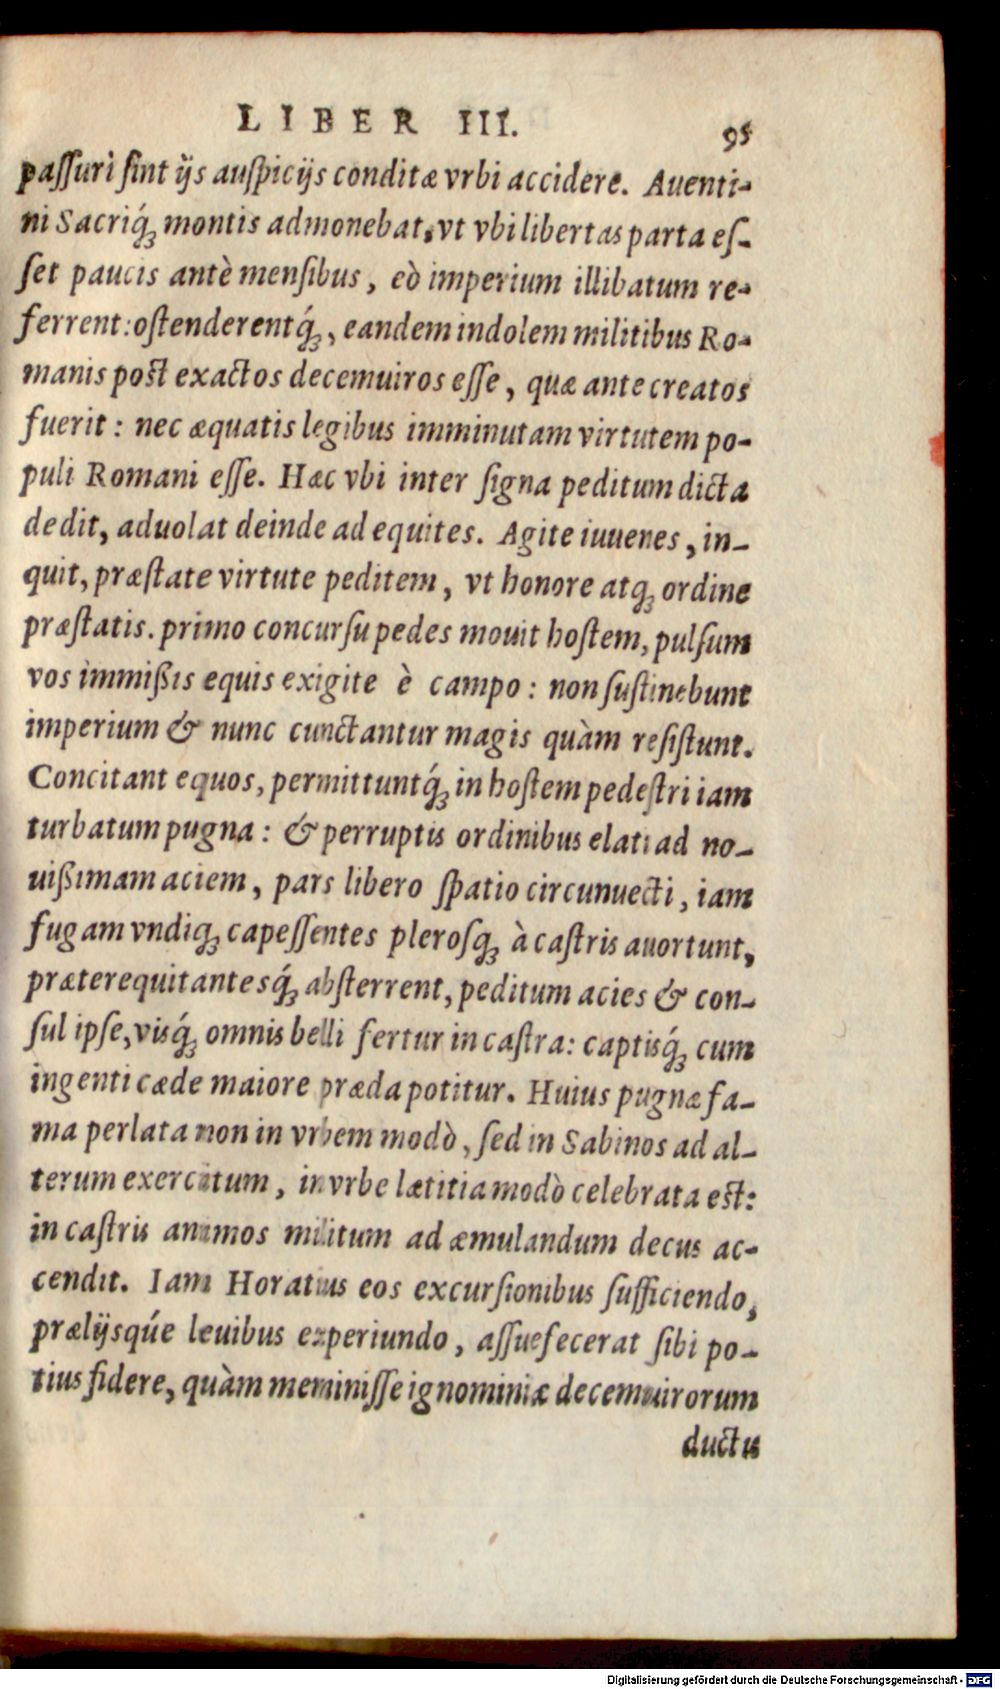 LIBER III. 95
passuri sint ijs auspicijs conditæ vrbi accidere. Auenti-
ni Sacriq́; montis admonebat, vt vbi libertas parta es-
set paucis antè mensibus, eò imperium illibatum re-
ferrent: ostenderentq́;, eandem indolem militibus Ro-
manis post exactos decemuiros esse, quæ ante creatos
fuerit: nec æquatis legibus imminutam virtutem po-
puli Romani esse. Hæc vbi inter signa peditum dicta
dedit, aduolat deinde ad equites. Agite iuuenes, in-
quit, præstate virtute peditem, vt honore atq; ordine
præstatis. primo concursu pedes mouit hostem, pulsum
vos immißis equis exigite è campo: non sustinebunt
imperium & nunc cunctantur magis quàm resistunt.
Concitant equos, permittuntq́; in hostem pedestri iam
turbatum pugna: & perruptis ordinibus elati ad no-
uißimam aciem, pars libero spatio circunuecti, iam
fugam vndiq; capessentes plerosq; à castris auortunt,
præterequitantesq́; absterrent, peditum acies & con-
sul ipse, visq́; omnis belli fertur in castra: captisq́; cum
ingenti cæde maiore præda potitur. Huius pugnæ fa-
ma perlata non in vrbem modò, sed in Sabinos ad al-
terum exercitum, in vrbe lætitia modò celebrata est:
in castris animos militum ad æmulandum decus ac-
cendit. Iam Horatius eos excursionibus sufficiendo,
prælijsqúe leuibus experiundo, assuefecerat sibi po-
tius fidere, quàm meminisse ignominiæ decemuirorum
ductu
Digitalisierung gefördert durch die Deutsche Forschungsgemeinschaft - DFG